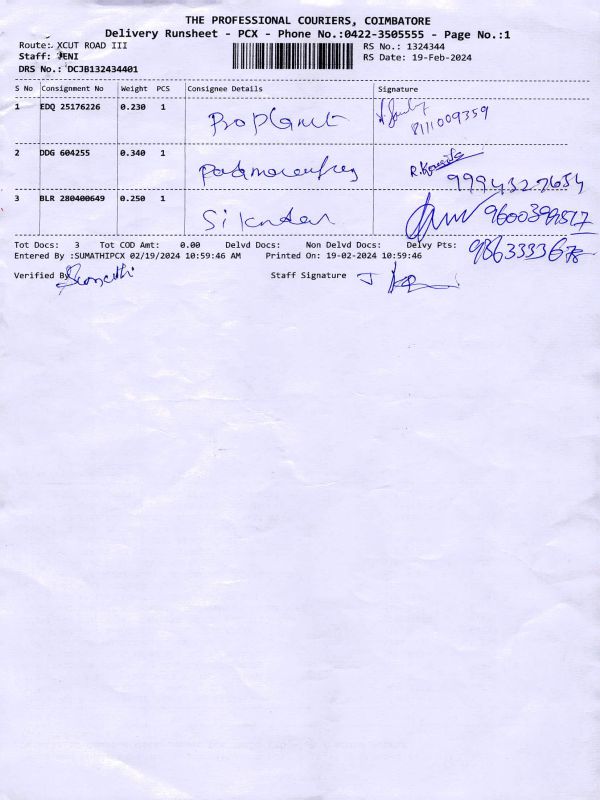 THE PROFESSIONAL COURIERS, COIMBATORE
Delivery Runsheet - PCX - Phone No.:0422-3505555 - Page No.:1
Route: XCUT ROAD III
RS No.: 1324344
Staff: JENI
RS Date: 19-Feb-2024
DRS No.: DCJB132434401
S No Consignment No Weight PCS Consignee Details Signature
1 EDQ 25176226 0.230 1 8111009359
2 DDG 604255 0.340 1 9994327654
3 BLR 280400649 0.250 1 Sikndar
Tot Docs: 3 Tot COD Amt: 0.00 Delvd Docs: Non Delvd Docs: Delvy Pts:
Entered By :SUMATHIPCX 02/19/2024 10:59:46 AM Printed On: 19-02-2024 10:59:46
Verified By Sumathi Staff Signature